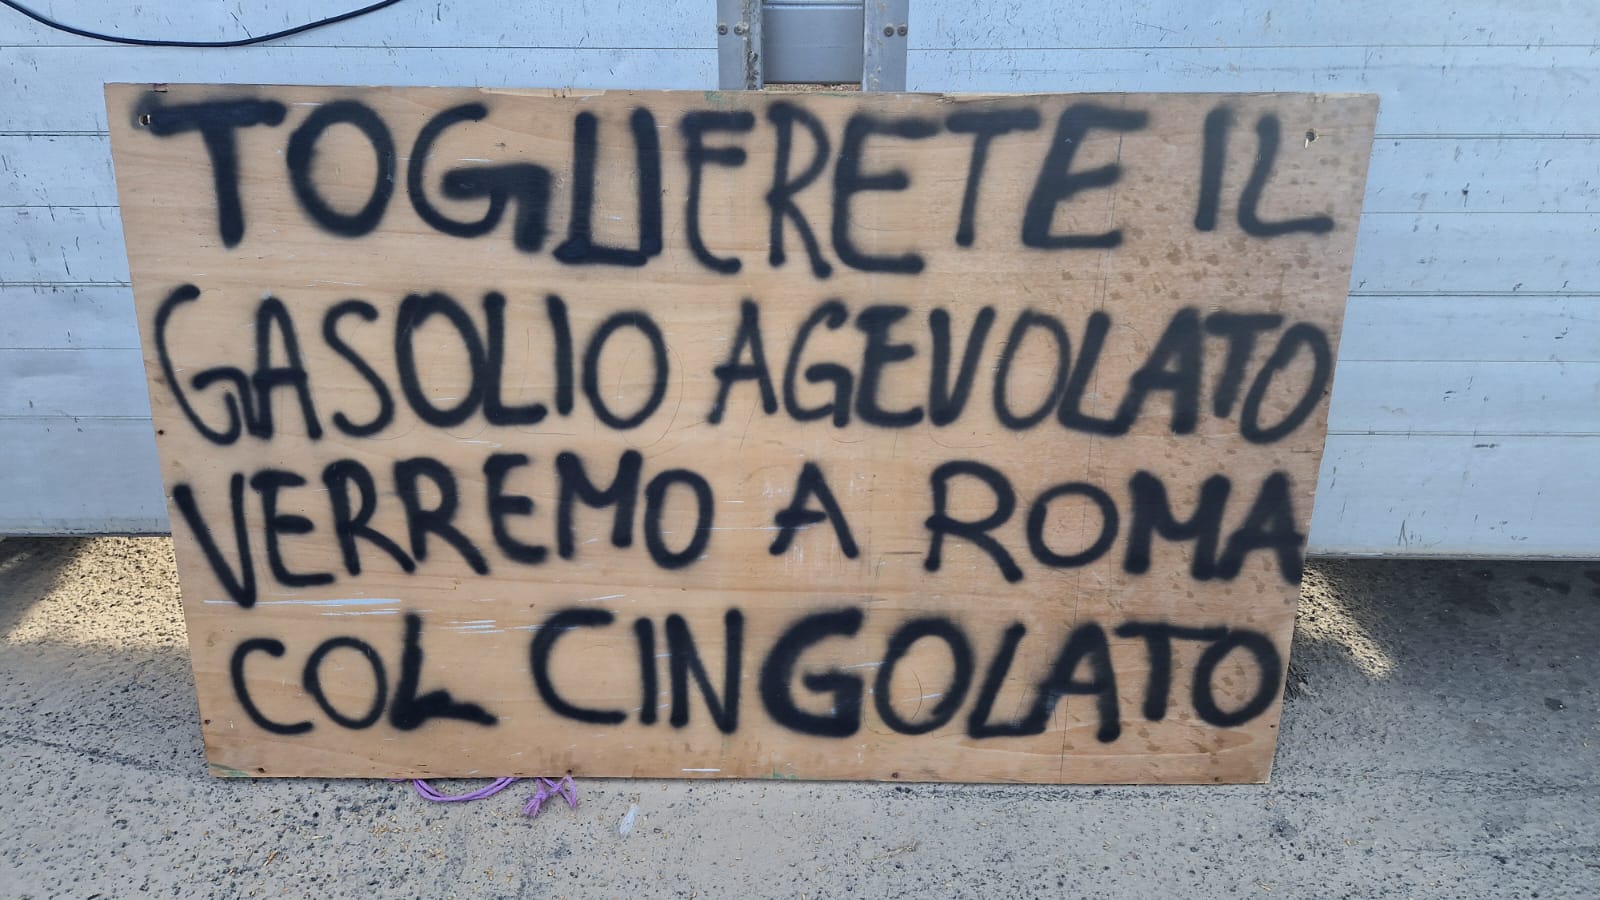 TOGLIERETE IL
GASOLIO AGEVOLATO
VERREMO A ROMA
COL CINGOLATO